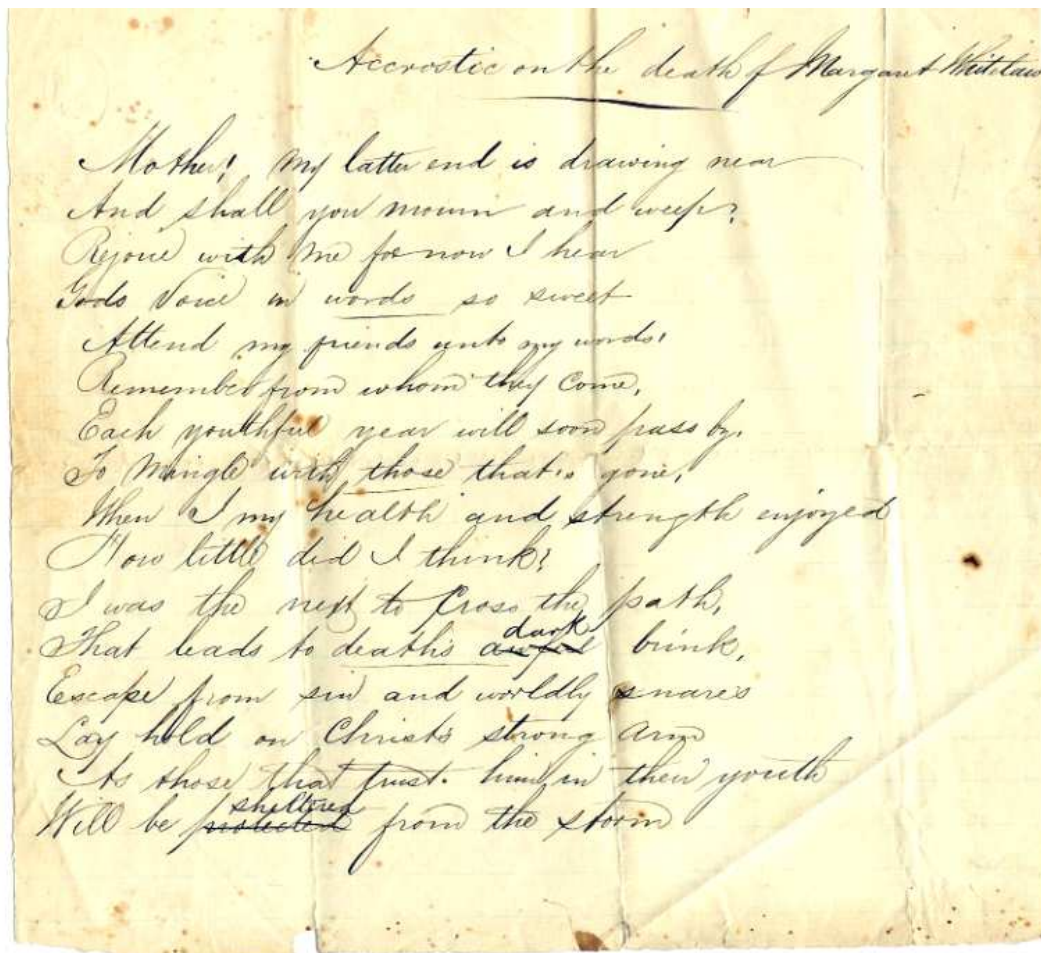 Accrostic on the death of Margaret Whitelaw
Mother! my latter end is drawing near
And shall you mourn and weep?
Rejoice with me for now I hear
Gods Voice in words so sweet
Attend my friends unto my words,
Remember from whom they Come,
Each youthful year will soon pass by,
To Mingle with those that's gone,
When I my health and strength enjoyed
How little did I think?
I was the next to Cross the path,
dark
That leads to death's awful brink,
Escape from sin and worldly snares
Lay hold on Christ's strong arm
As those that trust him in their youth
sheltered
Will be protected from the storm